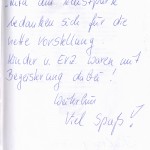 bedanken sich für die
nette Vorstellung
Kinder u. Erz. waren mit
Begeisterung dabei!
Weiterhin
Viel Spaß!